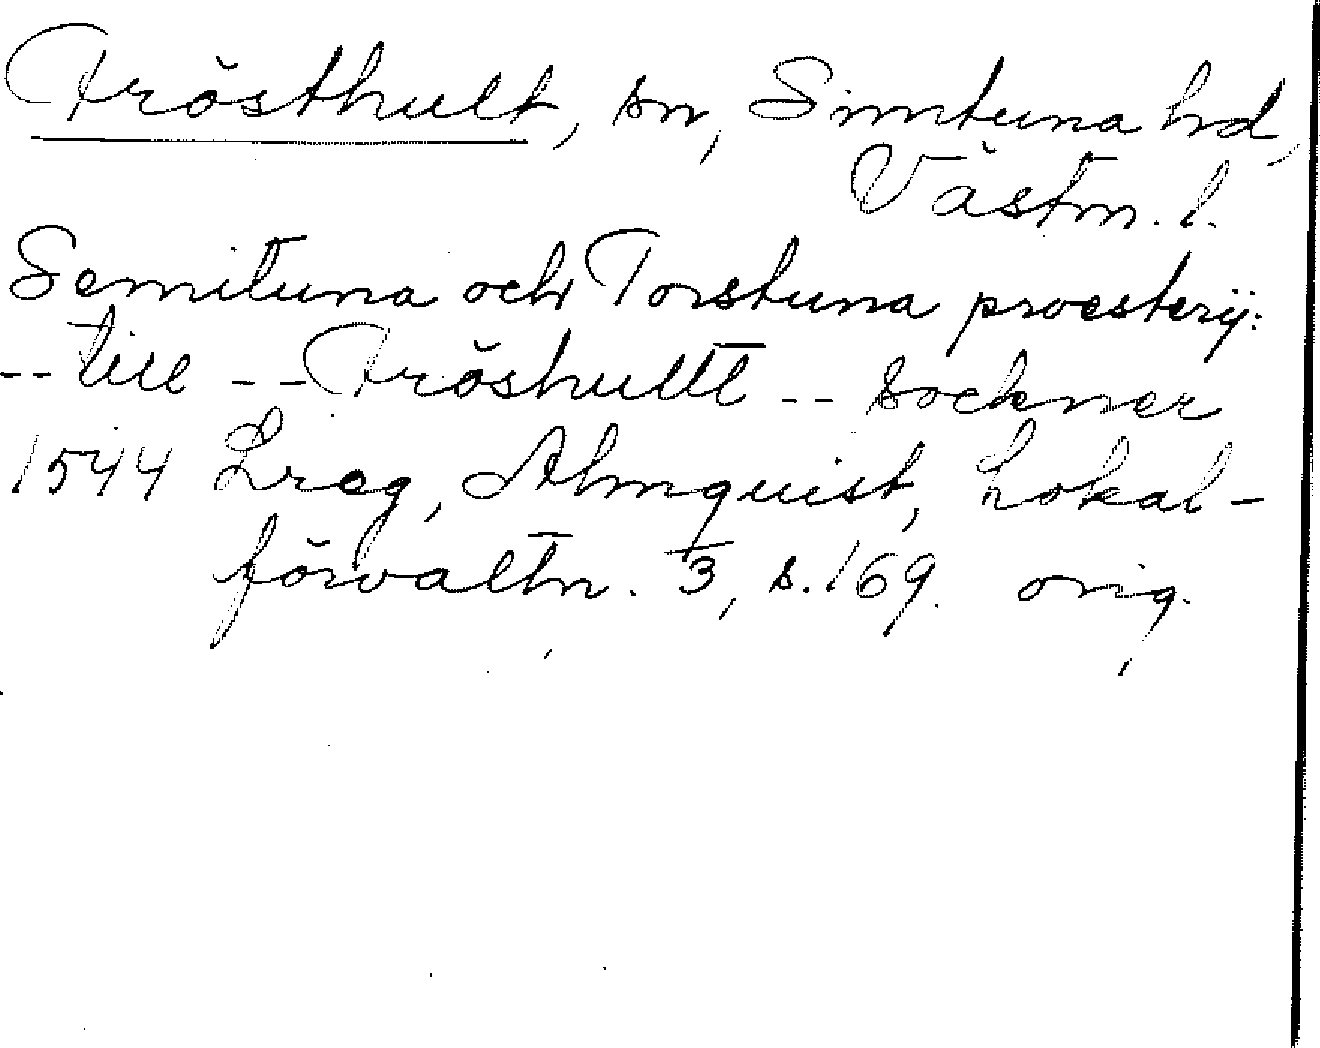 Frösthult, sn, Simtuna hd,
Västm. l.
Semituna och Torstuna proesterij:
-- till -- Fröshultt -- sockner
1544 Lreg, Almquist, Lokal-
förvaltn. 3, s. 169. orig.